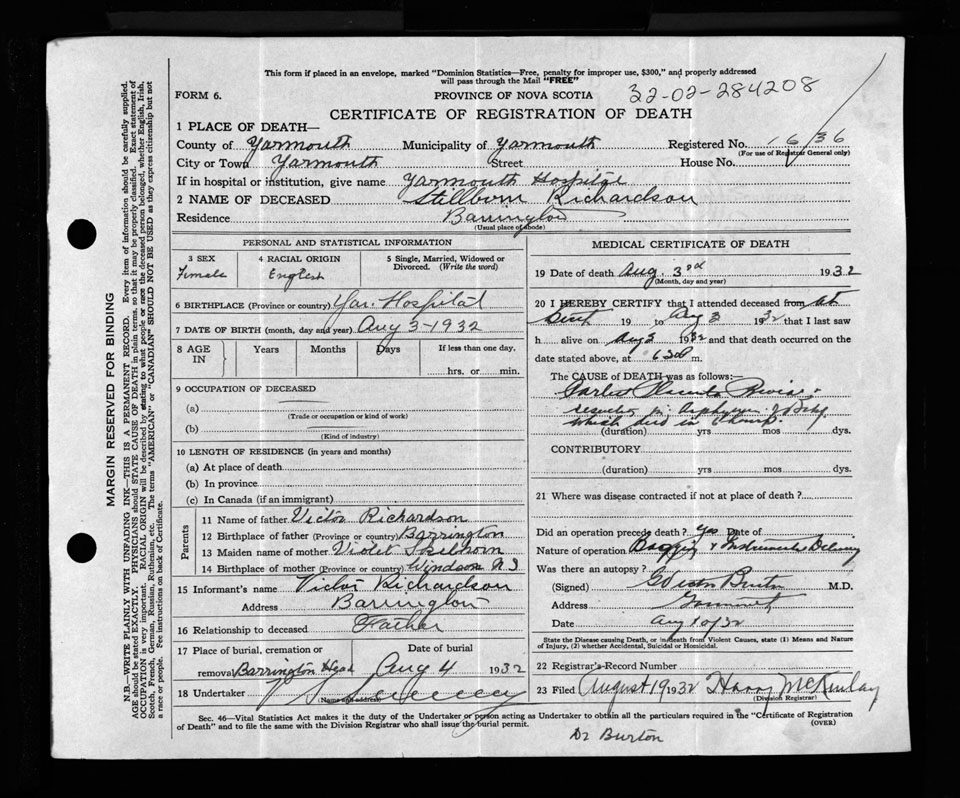 This form if placed in an envelope, marked "Dominion Statistics—Free, penalty for improper use, $300," and properly addressed
will pass through the Mail "FREE"
FORM 6.
PROVINCE OF NOVA SCOTIA
32-02-284208
CERTIFICATE OF REGISTRATION OF DEATH
1 PLACE OF DEATH—
County of Yarmouth Municipality of Yarmouth Registered No.
(For use of Registrar General only)
City or Town Yarmouth Street House No.
If in hospital or institution, give name Yarmouth Hospital
2 NAME OF DECEASED Stillborn Richardson
Residence Barrington
(Usual place of abode)
PERSONAL AND STATISTICAL INFORMATION
3 SEX 4 RACIAL ORIGIN 5 Single, Married, Widowed or
Divorced. (Write the word)
Female English
6 BIRTHPLACE (Province or country) Yar. Hospital
7 DATE OF BIRTH (month, day and year) Aug 3-1932
8 AGE IN Years Months Days If less than one day.
hrs. or min.
9 OCCUPATION OF DECEASED
(a)
(Trade or occupation or kind of work)
(b)
(Kind of industry)
10 LENGTH OF RESIDENCE (in years and months)
(a) At place of death
(b) In province
(c) In Canada (if an immigrant)
Parents
11 Name of father Victor Richardson
12 Birthplace of father (Province or country) Barrington
13 Maiden name of mother Violet
14 Birthplace of mother (Province or country) Windsor N S
15 Informant's name Victor Richardson
Address Barrington
16 Relationship to deceased Father
17 Place of burial, cremation or Date of burial
removal Barrington Head Aug 4 1932
18 Undertaker
(Name and address)
MEDICAL CERTIFICATE OF DEATH
19 Date of death Aug. 3rd 1932
(Month, day and year)
20 I HEREBY CERTIFY that I attended deceased from at
Birth 19 to Aug 3 1932 that I last saw
h alive on Aug 3 1932 and that death occurred on
date stated above, at 630 m.
The CAUSE of DEATH was as follows:—
Placenta
which died in
(duration) yrs mos dys.
CONTRIBUTORY
(duration) yrs mos dys.
21 Where was disease contracted if not at place of death?
Did an operation precede death? Yes Date of
Nature of operation Bagging & Instrumental Delivery
Was there an autopsy?
(Signed) Burton M.D.
Address Yarmouth
Date Aug 32
State the Disease causing Death, or in death from Violent Causes, state (1) Means and Nature
of Injury, (2) whether Accidental, Suicidal or Homicidal.
22 Registrar's Record Number
23 Filed August 19 1932 Harry McKinlay
(Division Registrar)
Sec. 46—Vital Statistics Act makes it the duty of the Undertaker or person acting as Undertaker to obtain all the particulars required in the "Certificate of Registration
of Death" and to file the same with the Division Registrar who shall issue the burial permit.
(OVER)
Dr Burton
MARGIN RESERVED FOR BINDING
N.B.—WRITE PLAINLY WITH UNFADING INK—THIS IS A PERMANENT RECORD. Every item of information should be carefully supplied.
AGE should be stated EXACTLY. PHYSICIANS should STATE CAUSE OF DEATH in plain terms, so that it may be properly classified. Exact statement of
OCCUPATION is very important. RACIAL ORIGIN will be described by stating to what people or race the deceased person belonged, whether English, Irish,
Scotch, French, German, Russian, Ruthenian, etc. The terms "AMERICAN" or "CANADIAN" SHOULD NOT BE USED as they express citizenship but not
a race or people. See instructions on back of Certificate.